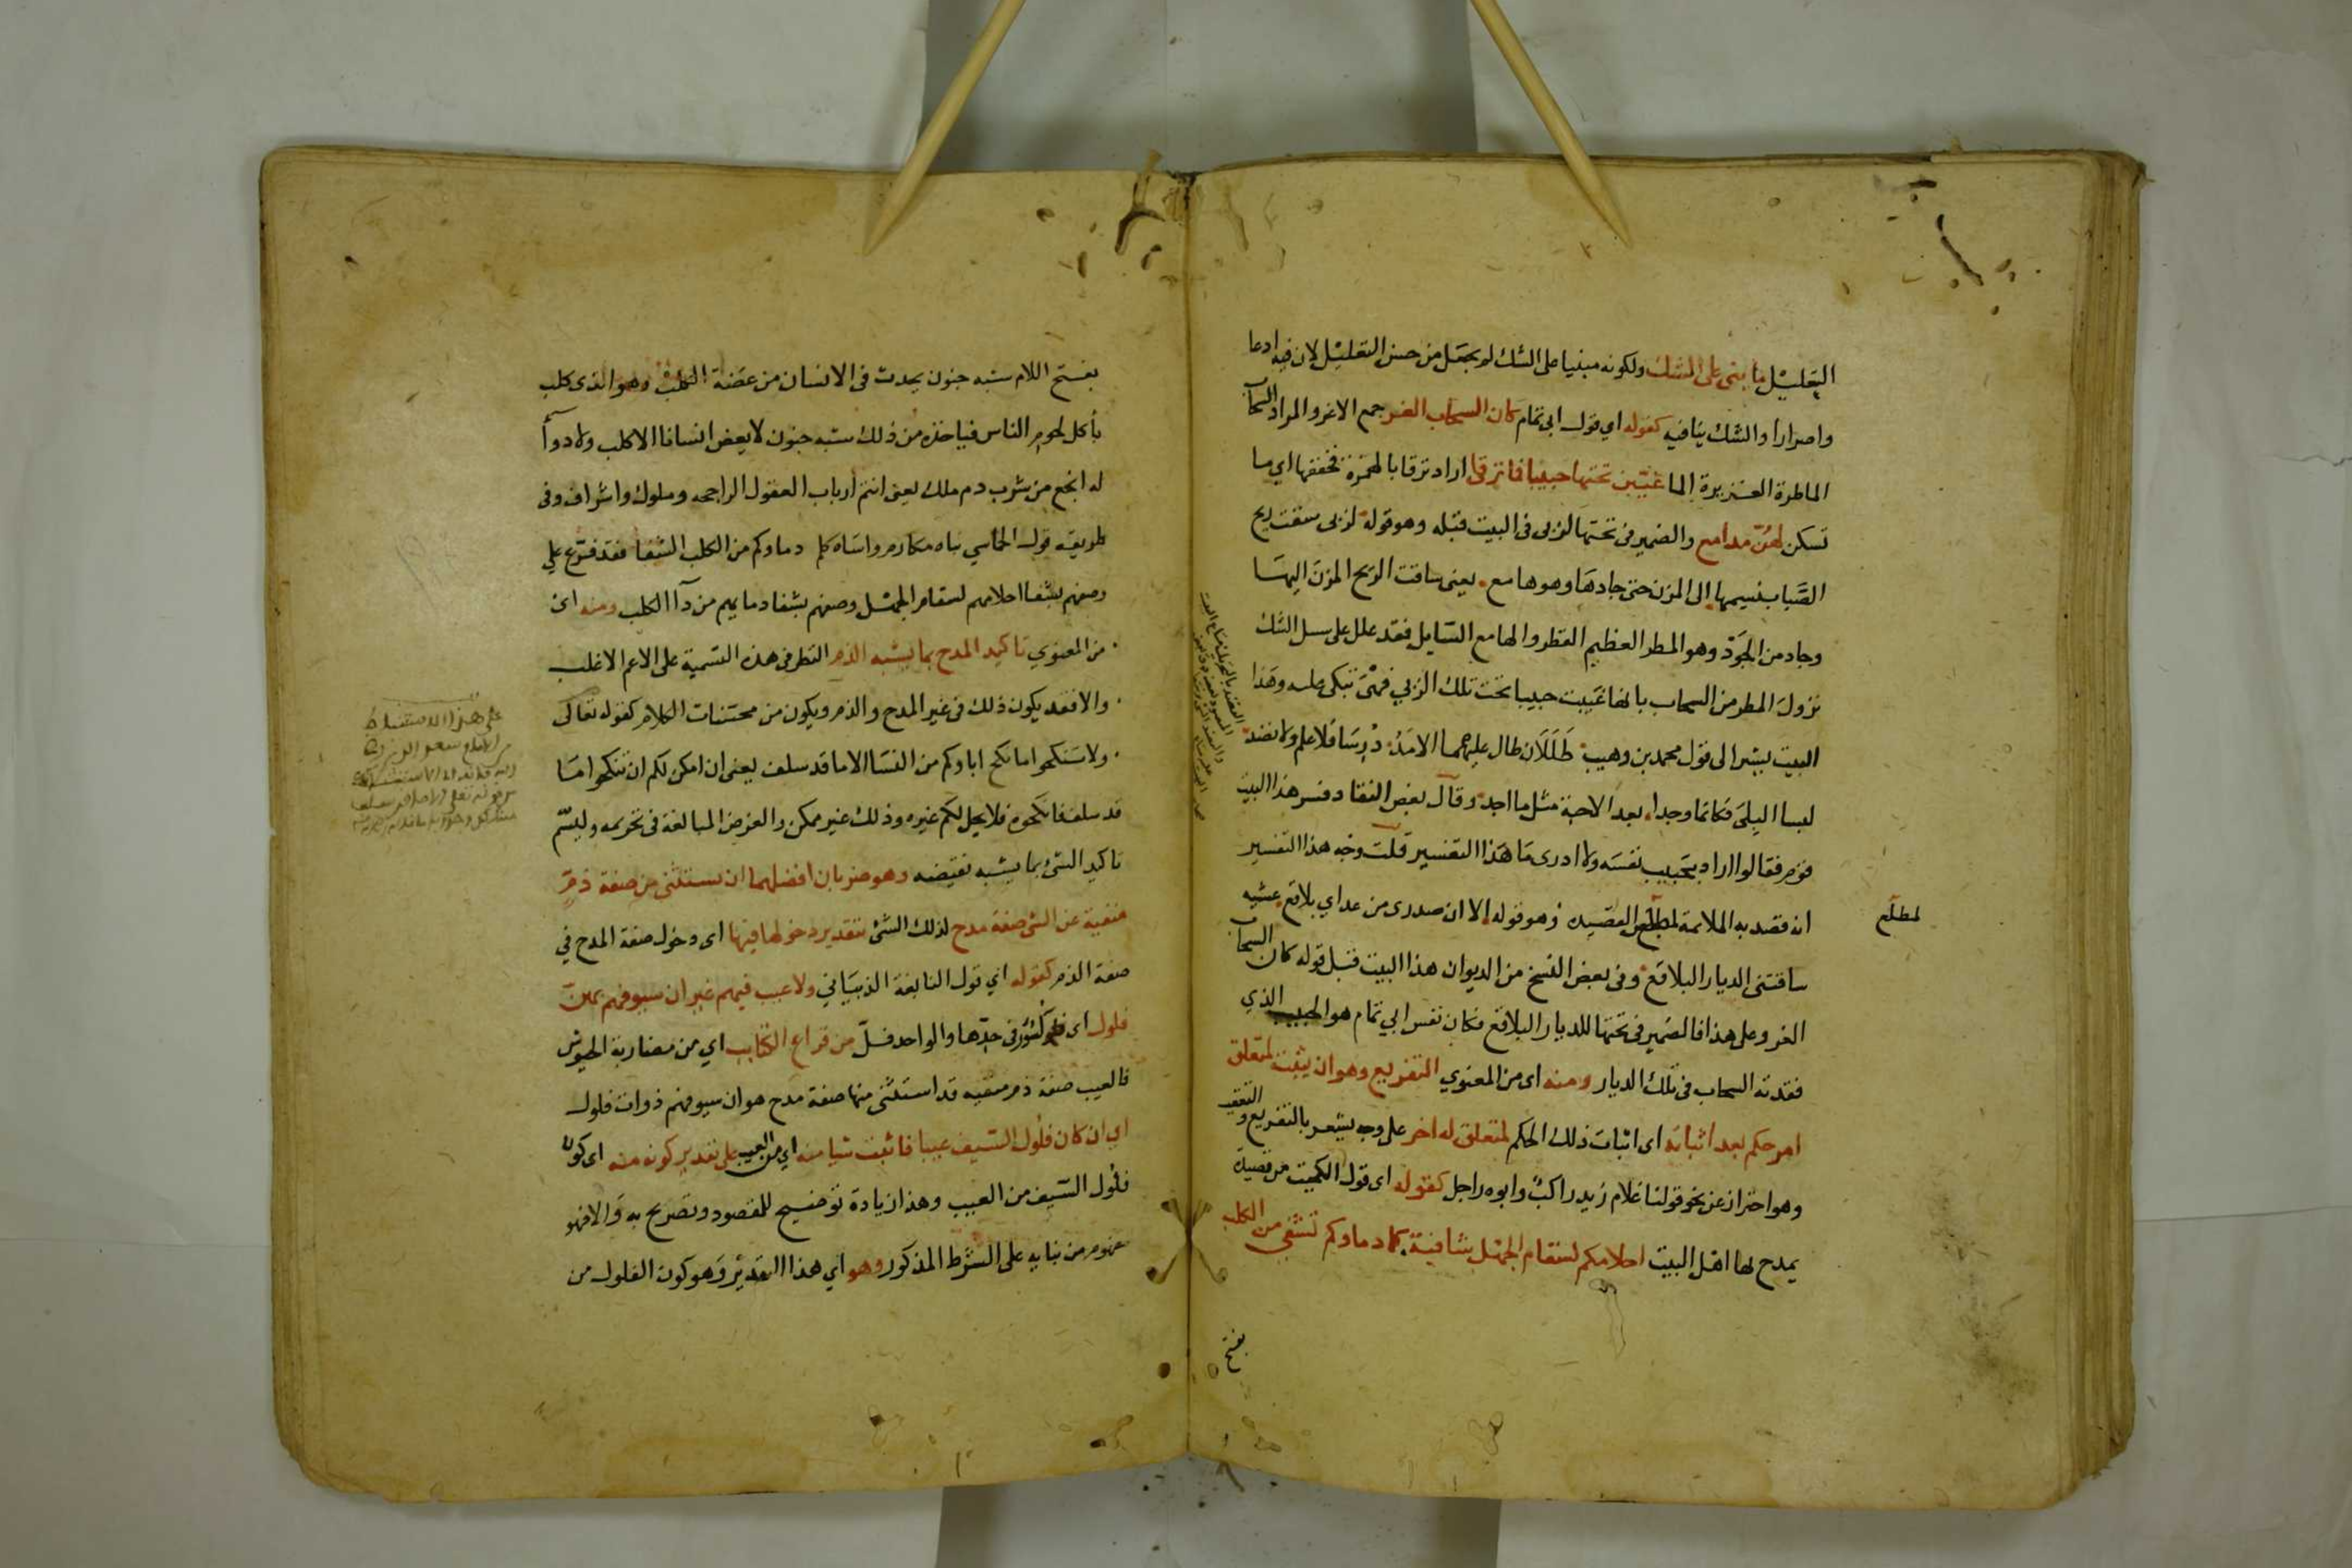 التعليل ما بنى على الشك ولكونه مبنيا على الشك لم يجعل من حسن التعليل لان فيه ادعا
واصرارا والشك ينافيه كقوله اي قول ابى تمام كان السحاب الغر جمع الاغر والمراد السحاب
الماطرة الغزيرة الما غيبن تحتها حبيبا فما ترقى اراد ترقا بالهمزة فخففها اي ما
تسكن لهن مدامع والضمير في تحتها لربى في البيت قبله وهو قوله ربى شفعت ريح
الصبا بنسيمها الى المزن حتى جادها وهو هامع يعنى ساقت الريح المزن اليها
وجاد من الجود وهو المطر العظيم القطر والهامع السايل فقد علل على سبيل الشك
نزول المطر من السحاب بانها غيبت حبيبا تحت تلك الربي فهي تبكى عليه وهذا
البيت يشير الى قول محمد بن وهيب طللان طال عليهما الامد درسا فلا علم ولا نضد
لبسا البلى فكانما وجدا بعد الاحبة مثل ما اجد وقال بعض النقاد فسر هذا البيت
قوم فقالوا اراد بحبيب نفسه ولا ادرى ما هذا التفسير قلت وجه هذا التفسير
انه قصد به الملائمة لمطلع القصيدة وهو قوله الا ان صدرى من عزاي بلاقع عشية
ساقتنى الديار البلاقع وفى بعض النسخ من الديوان هذا البيت قبل قوله كان السحاب
الغر وعلى هذا فالضمير في تحتها للديار البلاقع فكان نفس ابي تمام هو الحبيب الذي
فقدته السحاب فى تلك الديار ومنه اى من المعنوي التفريع وهو ان يثبت لمتعلق
امر حكم بعد اثباته اى اثبات ذلك الحكم لمتعلق له اخر على وجه يشعر بالتفريع والتعقيب
وهو احتراز عن نحو قولنا غلام زيد راكب وابوه راجل كقوله اى قول الكميت من قصيدة
يمدح بها اهل البيت احلامكم لسقام الجهل شافية كما دماوكم تشفي من الكلب
لمطلع
بفتح
بفتح اللام شبه جنون يحدث فى الانسان من عضة الكلب وهو الذى كلب
بأكل لحوم الناس فياخذه من ذلك شبه جنون لا يعض انسانا الا كلب ولا دوآ
له انجع من شرب دم ملك يعنى انتم أرباب العقول الراجحه وملوك واشراف وفى
طريقته قول الحماسي بناه مكارم واساه كلم دماوكم من الكلب الشفا فقد فرع على
وصفهم بشفا احلامهم لسقام الجهل وصفهم بشفا دمايهم من دآ الكلب ومنه اى
من المعنوي تاكيد المدح بما يشبه الذم النظر فى هذه التسمية على الاعم الاغلب
والا فقد يكون ذلك فى غير المدح والذم ويكون من محسنات الكلام كقوله تعالى
ولا تنكحوا ما نكح اباوكم من النسا الا ما قد سلف يعنى ان امكن لكم ان تنكحوا ما
قد سلف فانكحوه فلا يحل لكم غيره وذلك غير ممكن والغرض المبالغة فى تحريمه وليسم
تاكيد الشئ بما يشبه نقيضه وهو ضربان افضلهما ان يستثنى من صفة ذم
منفية عن الشى صفة مدح لذلك الشئ بتقدير دخولها فيها اى دخول صفة المدح في
صفة الذم كقوله اي قول النابغة الذبياني ولا عيب فيهم غير ان سيوفهم بهن
فلول اى كسور فى حدها والواحد فل من قراع الكتايب اي من مضاربة الجيوش
فالعيب صفة ذم منفيه قد استثنى منها صفة مدح هو ان سيوفهم ذوات فلول
اي ان كان فلول السيف عيبا فاثبت شيا منه اي من العيب على تقدير كونه منه اى كون
فلول السيف من العيب وهذا زيادة توضيح للمقصود وتصريح به والا فهو
مفهوم من بنايه على الشرط المذكور وهو اي هذا التقدير وهو كون الفلول من
على هذا الاستنباط